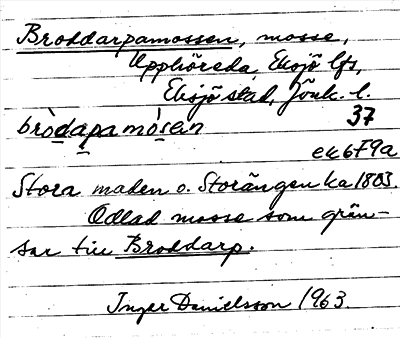 Broddarpamossen, mosse,
Upphöreda, Eksjö lfs,
Eksjö stad, Jönk. l.
37
bròdapamòsen
ek6F9a
Stora maden o. Storängen ka 1803.
Odlad mosse som grän-
sar till Broddarp.
Inger Danielsson 1963.